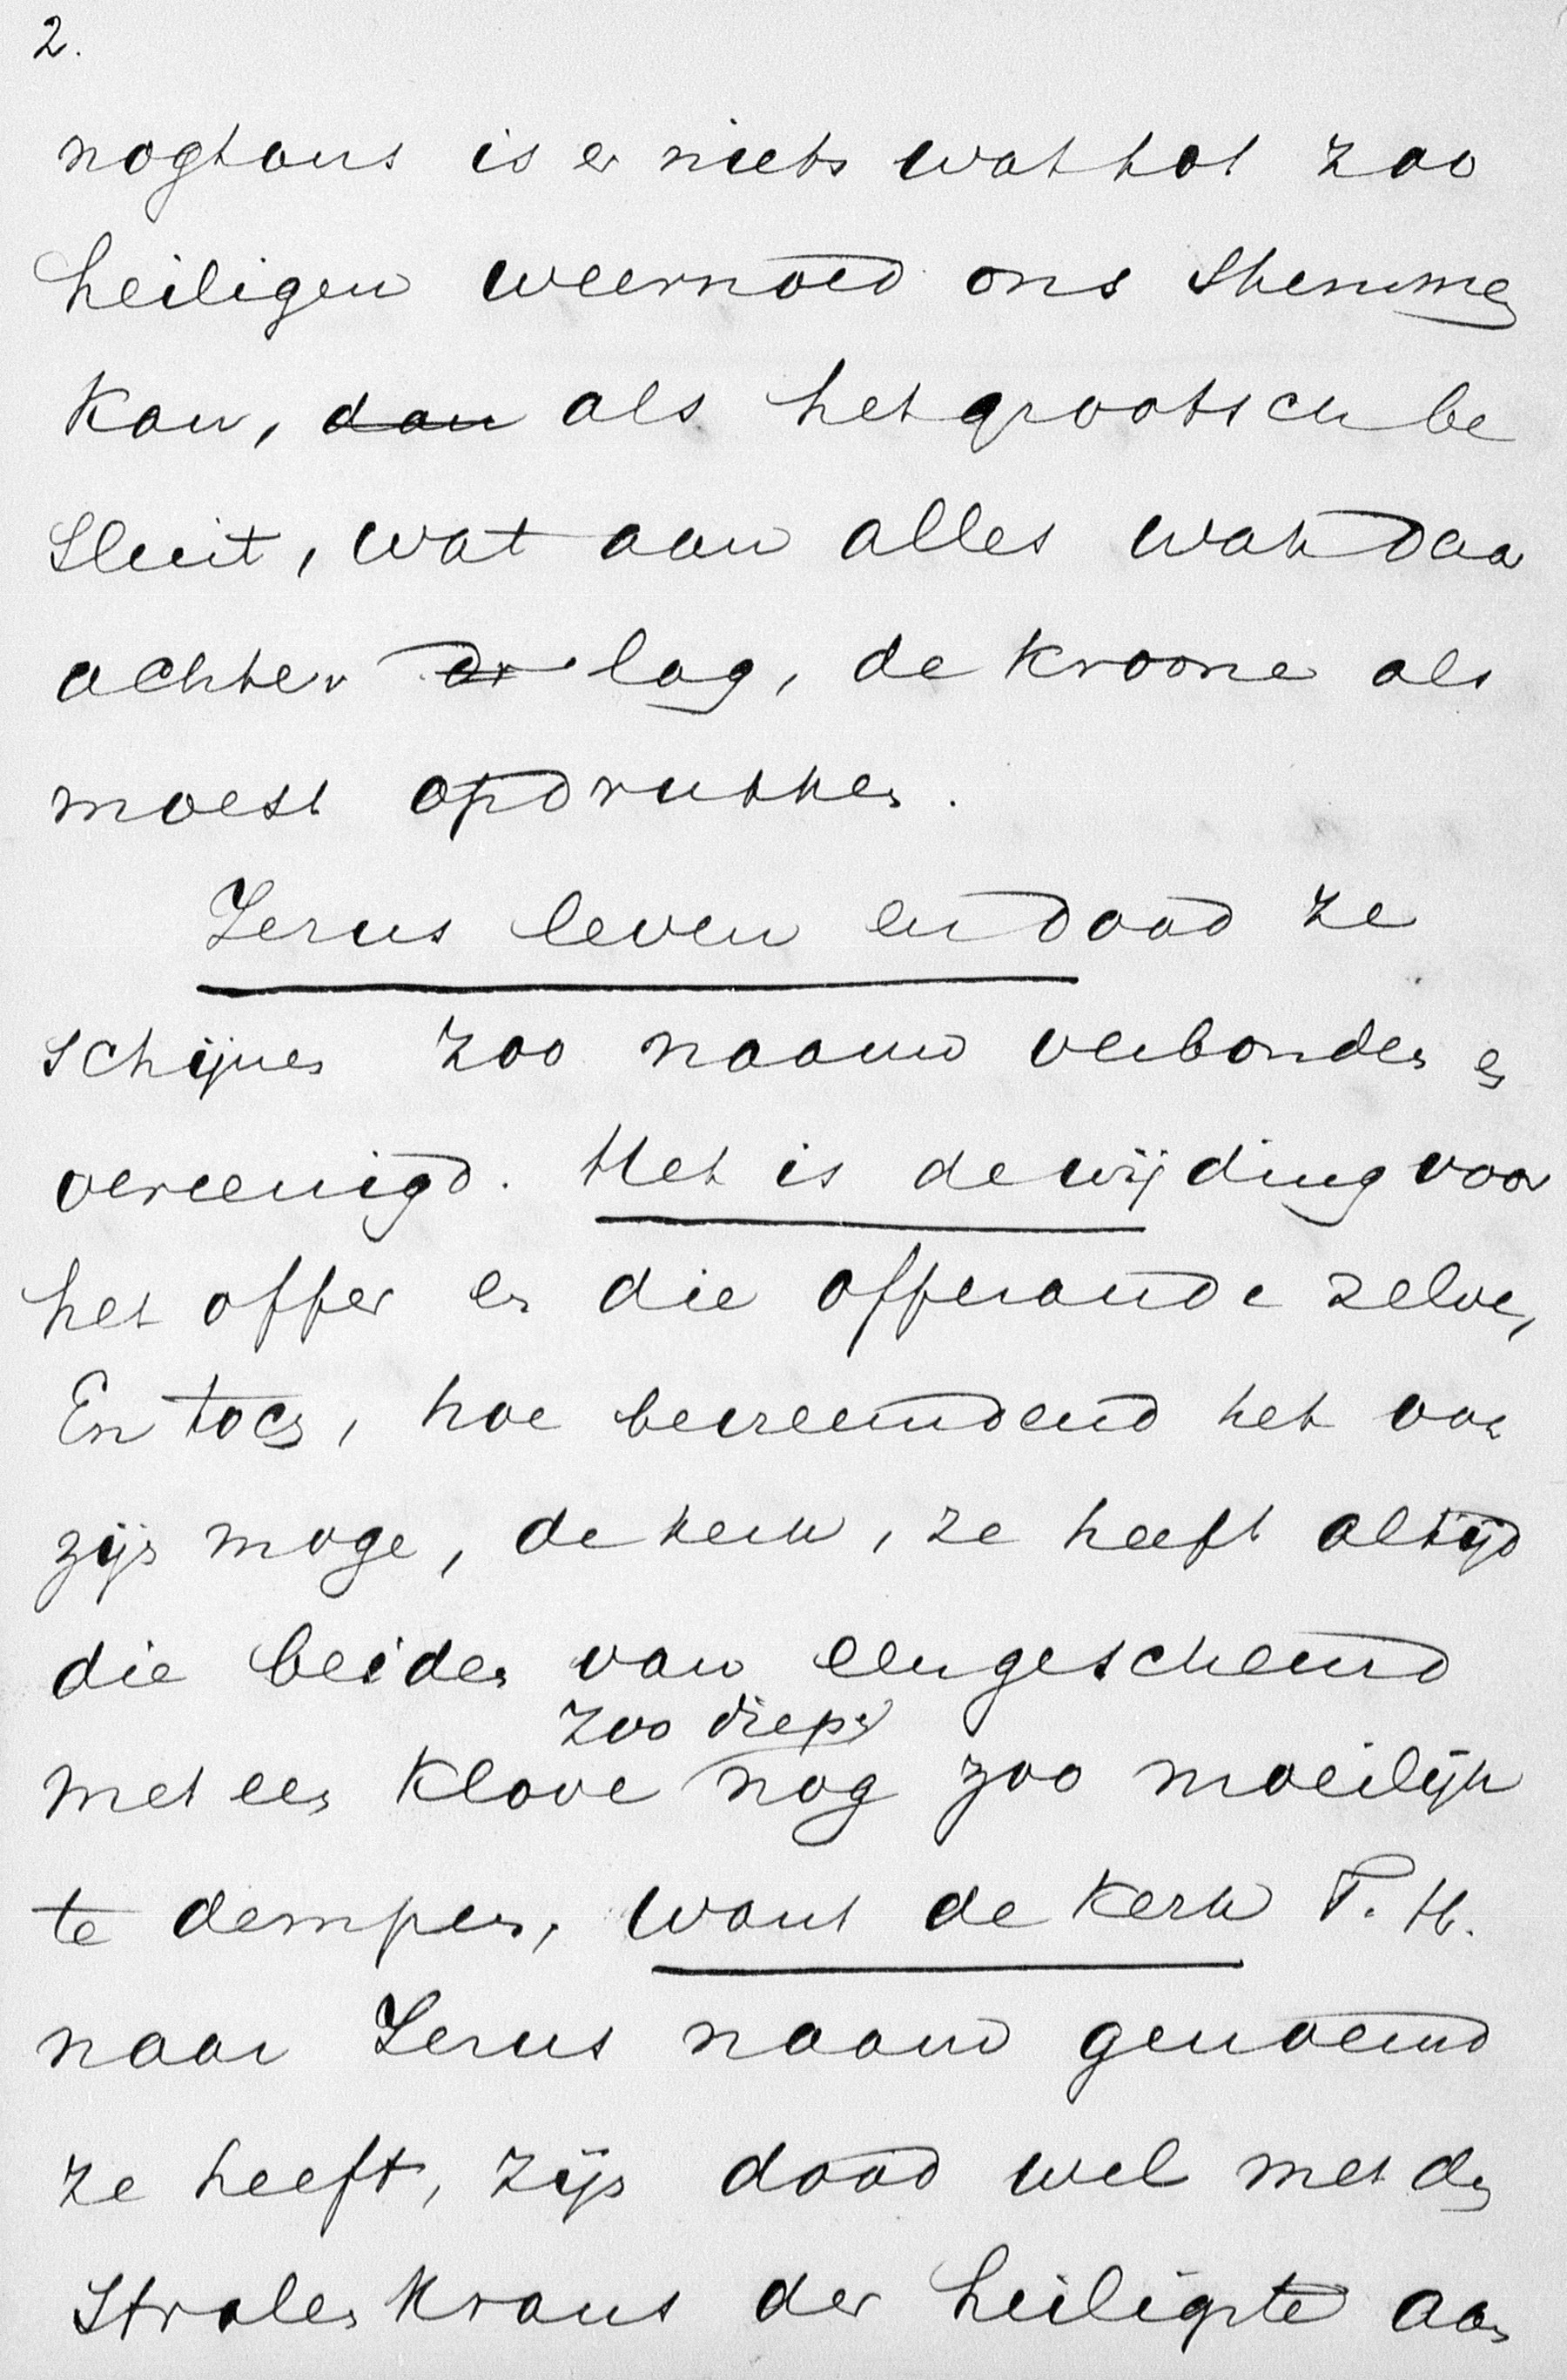 2.
nogtans is er niets wat tot zoo
heiligen weemoed ons stemmen
kan, dan als het grootsch be
sluit, wat aan alles wat daar
achter er lag, de kroone als
moest opdrukken.
Jezus leven en dood ze
schijnen zoo naauw verbonden en
vereenigd. Het is de wijding voor
het offer en die offerande zelve,
En toch, hoe bevreemdend het ook
zijn moge, de kerk, ze heeft altijd
die beiden van een gescheurd
zoo diep
met een klove nog zoo moeilijk
te dempen, want de kerk T. H.
naar Jezus naam genoemd
ze heeft, zijn dood wel met den
stralenkrans der heiligste aan